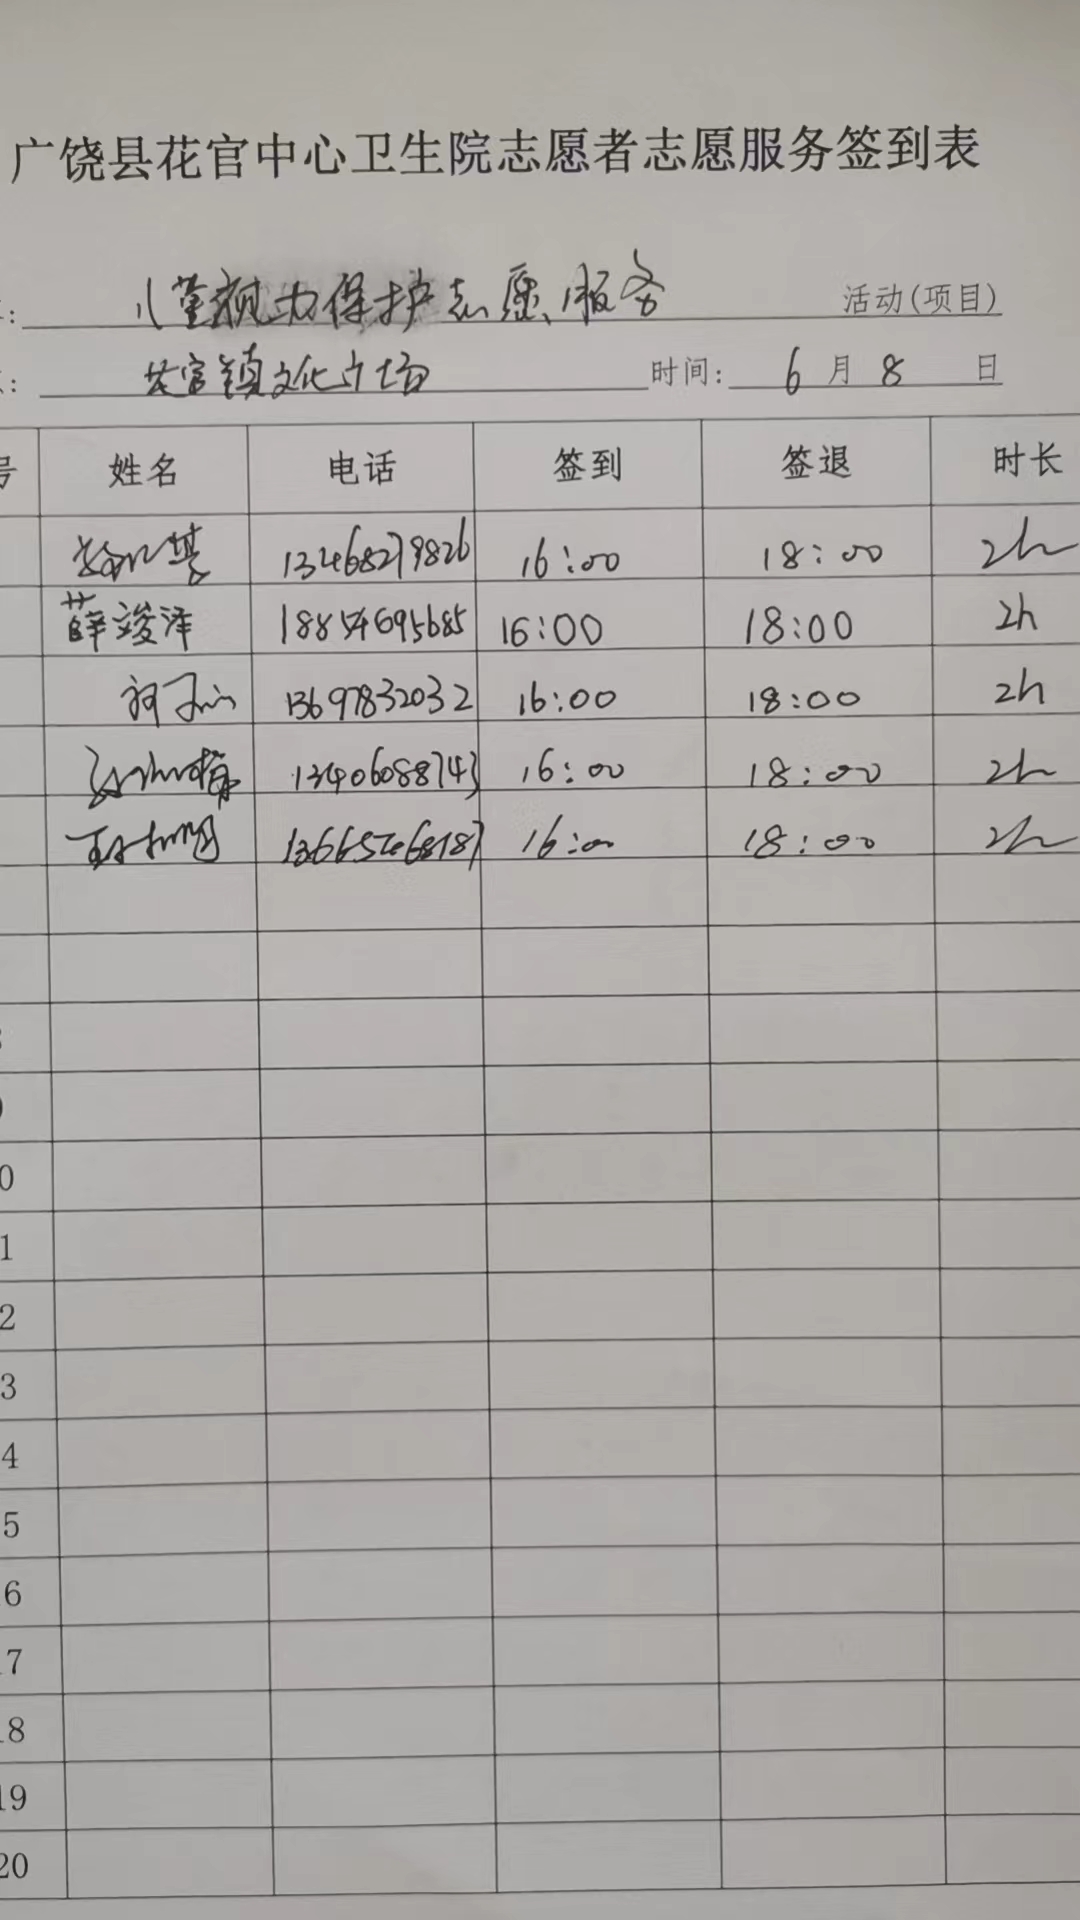 广饶县花官中心卫生院志愿者志愿服务签到表
: 儿童视力保护志愿服务 活动(项目)
: 花官镇文化广场 时间: 6月8日
号 姓名 电话 签到 签退 时长
13468279826 16:00 18:00 2h
薛竣泽 18854695685 16:00 18:00 2h
13697832032 16:00 18:00 2h
13406088743 16:00 18:00 2h
16:00 18:00 2h
0
1
2
3
4
5
6
7
18
19
20